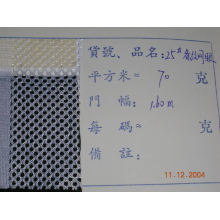 貨號、品名:25#
平方米= 70 克
門 幅: 1.60 m
每 碼= 克
備 註:
11.12.2004